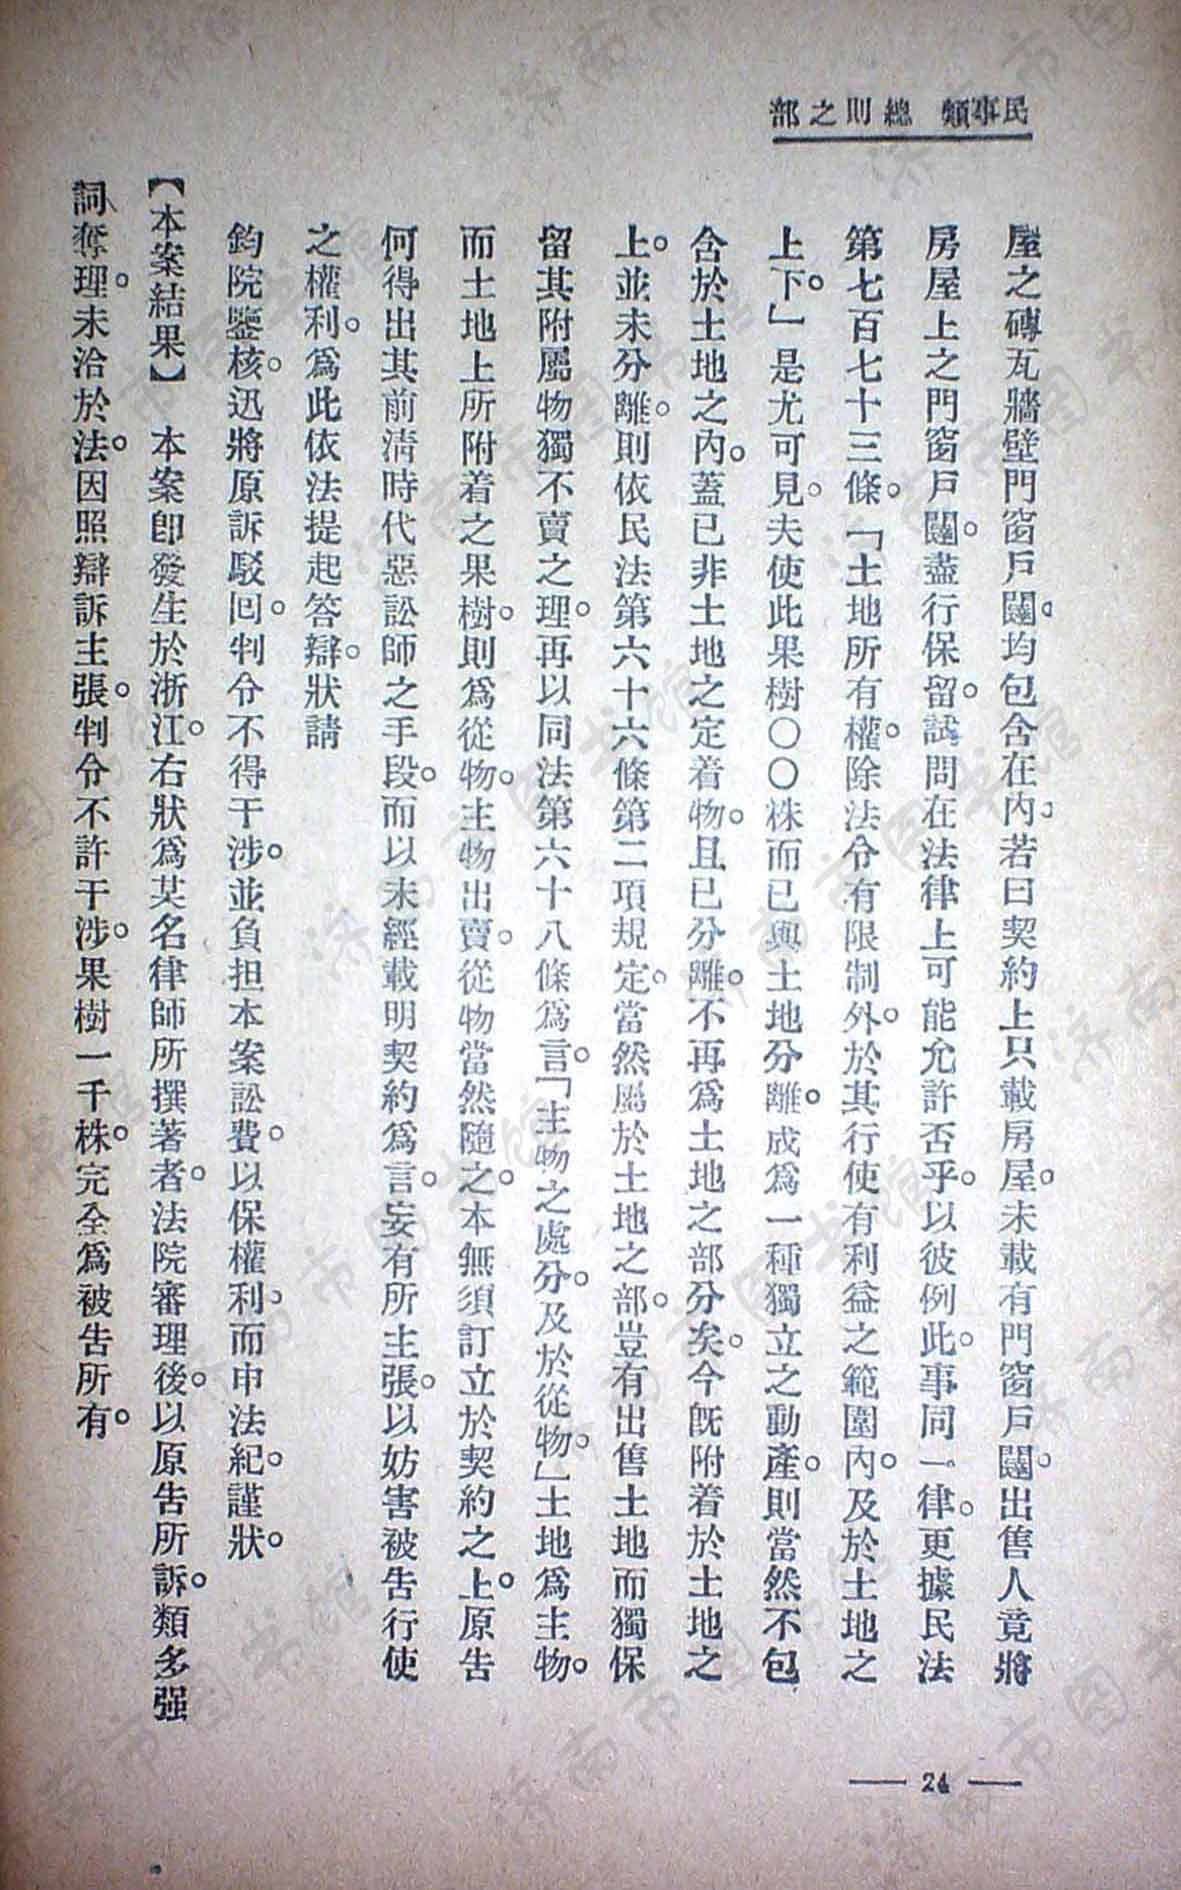 民事類　總則之部
屋之磚瓦牆壁門窗戶闥。均包含在內。若曰契約上只載房屋。未載有門窗戶闥。出售人竟將
房屋上之門窗戶闥。盡行保留。試問在法律上可能允許否乎。以彼例此。事同一律。更據民法
第七百七十三條。「土地所有權。除法令有限制外。於其行使有利益之範圍內。及於土地之
上下。」是尤可見。夫使此果樹〇〇株而已與土地分離。成爲一種獨立之動產。則當然不包
含於土地之內。蓋已非土地之定着物。且已分離。不再爲土地之部分矣。今旣附着於土地之
上。並未分離。則依民法第六十六條第二項規定。當然屬於土地之部。豈有出售土地而獨保
留其附屬物獨不賣之理。再以同法第六十八條爲言。「主物之處分。及於從物。」土地爲主物。
而土地上所附着之果樹。則爲從物。主物出賣。從物當然隨之。本無須訂立於契約之上。原告
何得出其前清時代惡訟師之手段。而以未經載明契約爲言。妄有所主張。以妨害被告行使
之權利。爲此依法提起答辯。狀請
鈞院鑒核。迅將原訴駁回。判令不得干涉。並負担本案訟費。以保權利。而申法紀。謹狀。
【本案結果】　本案卽發生於浙江。右狀爲某名律師所撰著者。法院審理後。以原告所訴。類多强
詞奪理。未洽於法。因照辯訴主張。判令不許干涉。果樹一千株。完全爲被告所有。
— 24 —
济南市图书馆